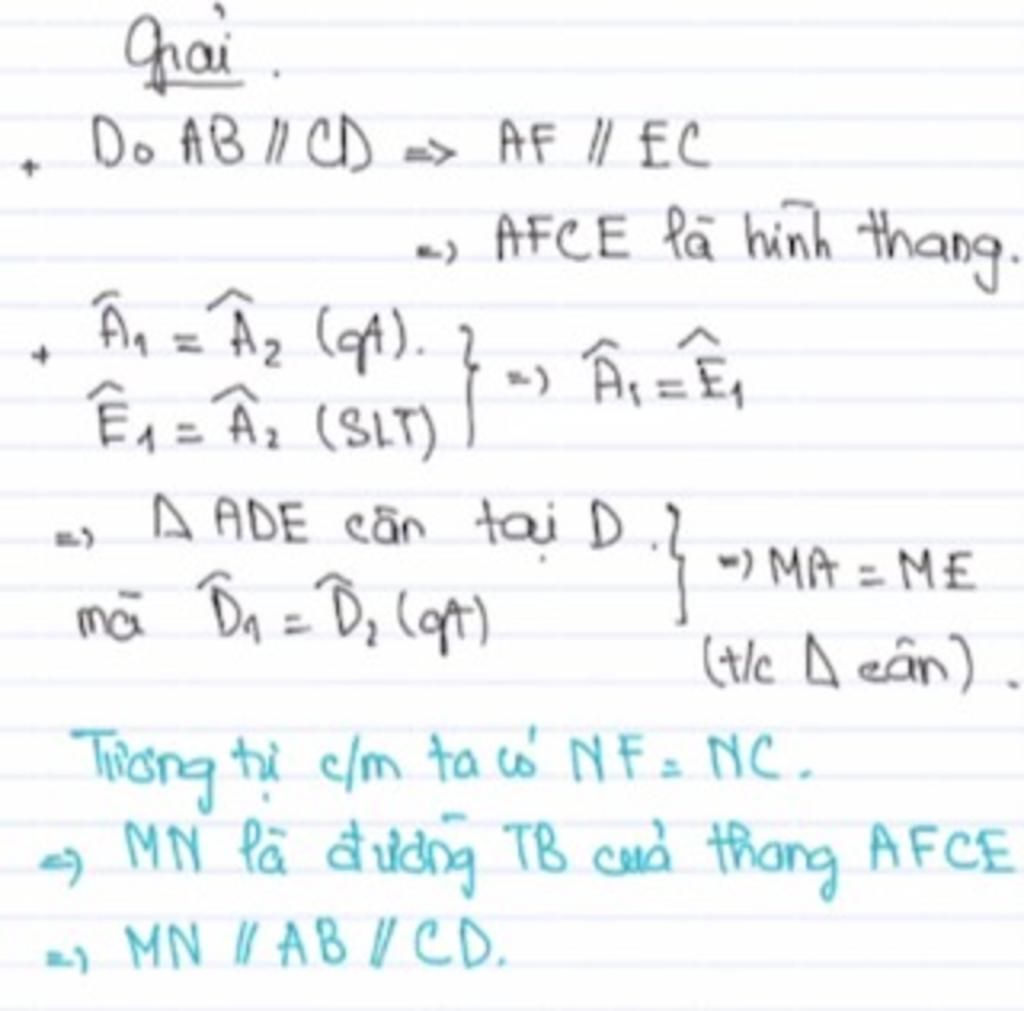 Giải.
+ Do AB // CD => AF // EC
=> AFCE là hình thang.
+ Â₁ = Â₂ (gt).
Ê₁ = Â₂ (SLT) } => Â₁ = Ê₁
=> Δ ADE cân tại D.
mà D̂₁ = D̂₂ (gt) } => MA = ME
(t/c Δ cân).
Tương tự c/m ta có NF = NC.
=> MN là đường TB của thang AFCE
=> MN // AB // CD.